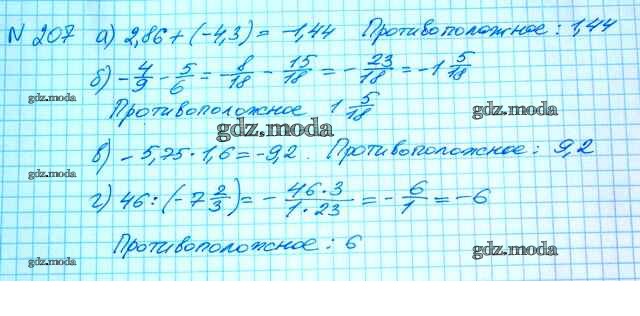 N 207 а) 2,86 + (-4,3) = -1,44 Противоположное: 1,44
б) -4/9 - 5/6 = -8/18 - 15/18 = -23/18 = -1 5/18
gdz.moda
Противоположное 1 5/18 gdz.moda
gdz.moda
в) -5,75 · 1,6 = -9,2. Противоположное: 9,2
gdz.moda
г) 46 : (-7 2/3) = - 46·3/1·23 = - 6/1 = -6
Противоположное: 6
gdz.moda gdz.moda